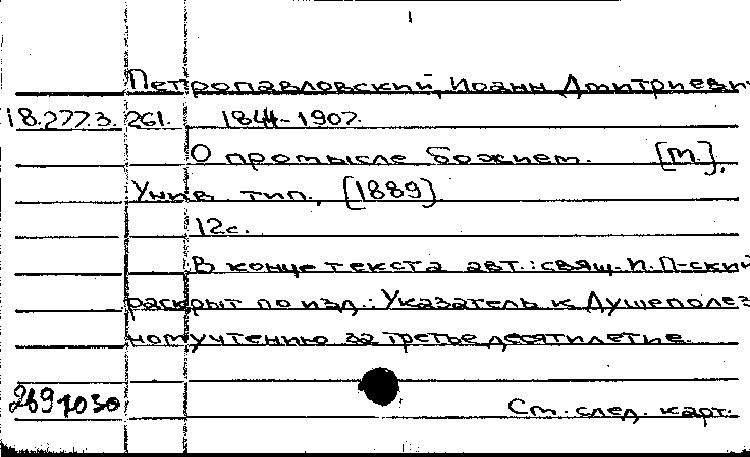 Петропавловский, Иоанн Дмитриеви
18.277.3.261. 1844-1907.
О промысле божием. [М.],
Унив. тип., [1889]
12с.
В конце текста авт.: свящ. И. П-ский
раскрыт по изд.: Указатель к Душеполез
ному чтению за третье десятилетие.
2691030
См. след. карт.